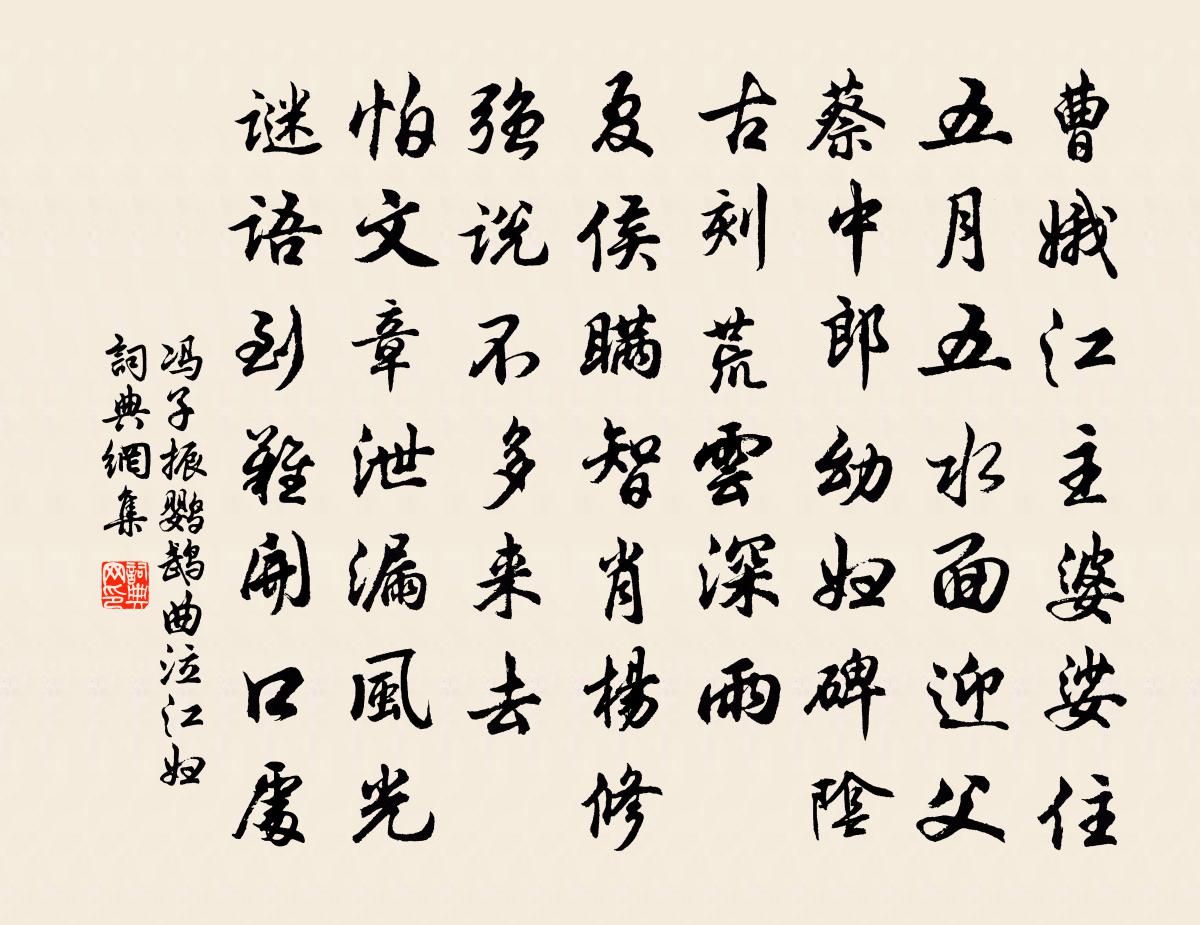 曹娥江主婆娑住
五月五水面迎父
蔡中郎幼妇碑陰
古刻荒雲深雨
夏侯瞒智肖楊修
强说不多来去
怕文章泄漏風光
谜语到難開口處
冯子振鹦鹉曲泣江妇
詞典網集
詞典网印